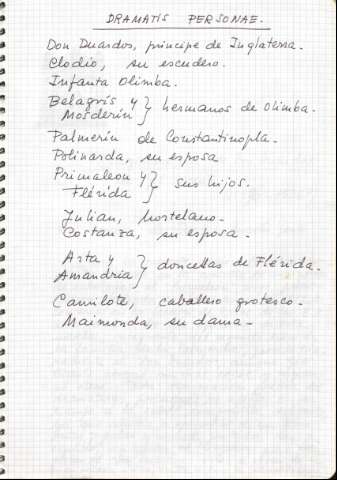 DRAMATIS PERSONAE.
Don Duardos, príncipe de Inglaterra.
Clodio, su escudero.
Infanta Olimba.
Belagrís y } hermanos de Olimba.
Mosderín
Palmerín de Constantinopla.
Polinarda, su esposa
Primaleon y } sus hijos.
Flérida
Julian, hortelano.
Costanza, su esposa.
Arta y } doncellas de Flérida.
Amandria
Camilote, caballero grotesco.
Maimonda, su dama.